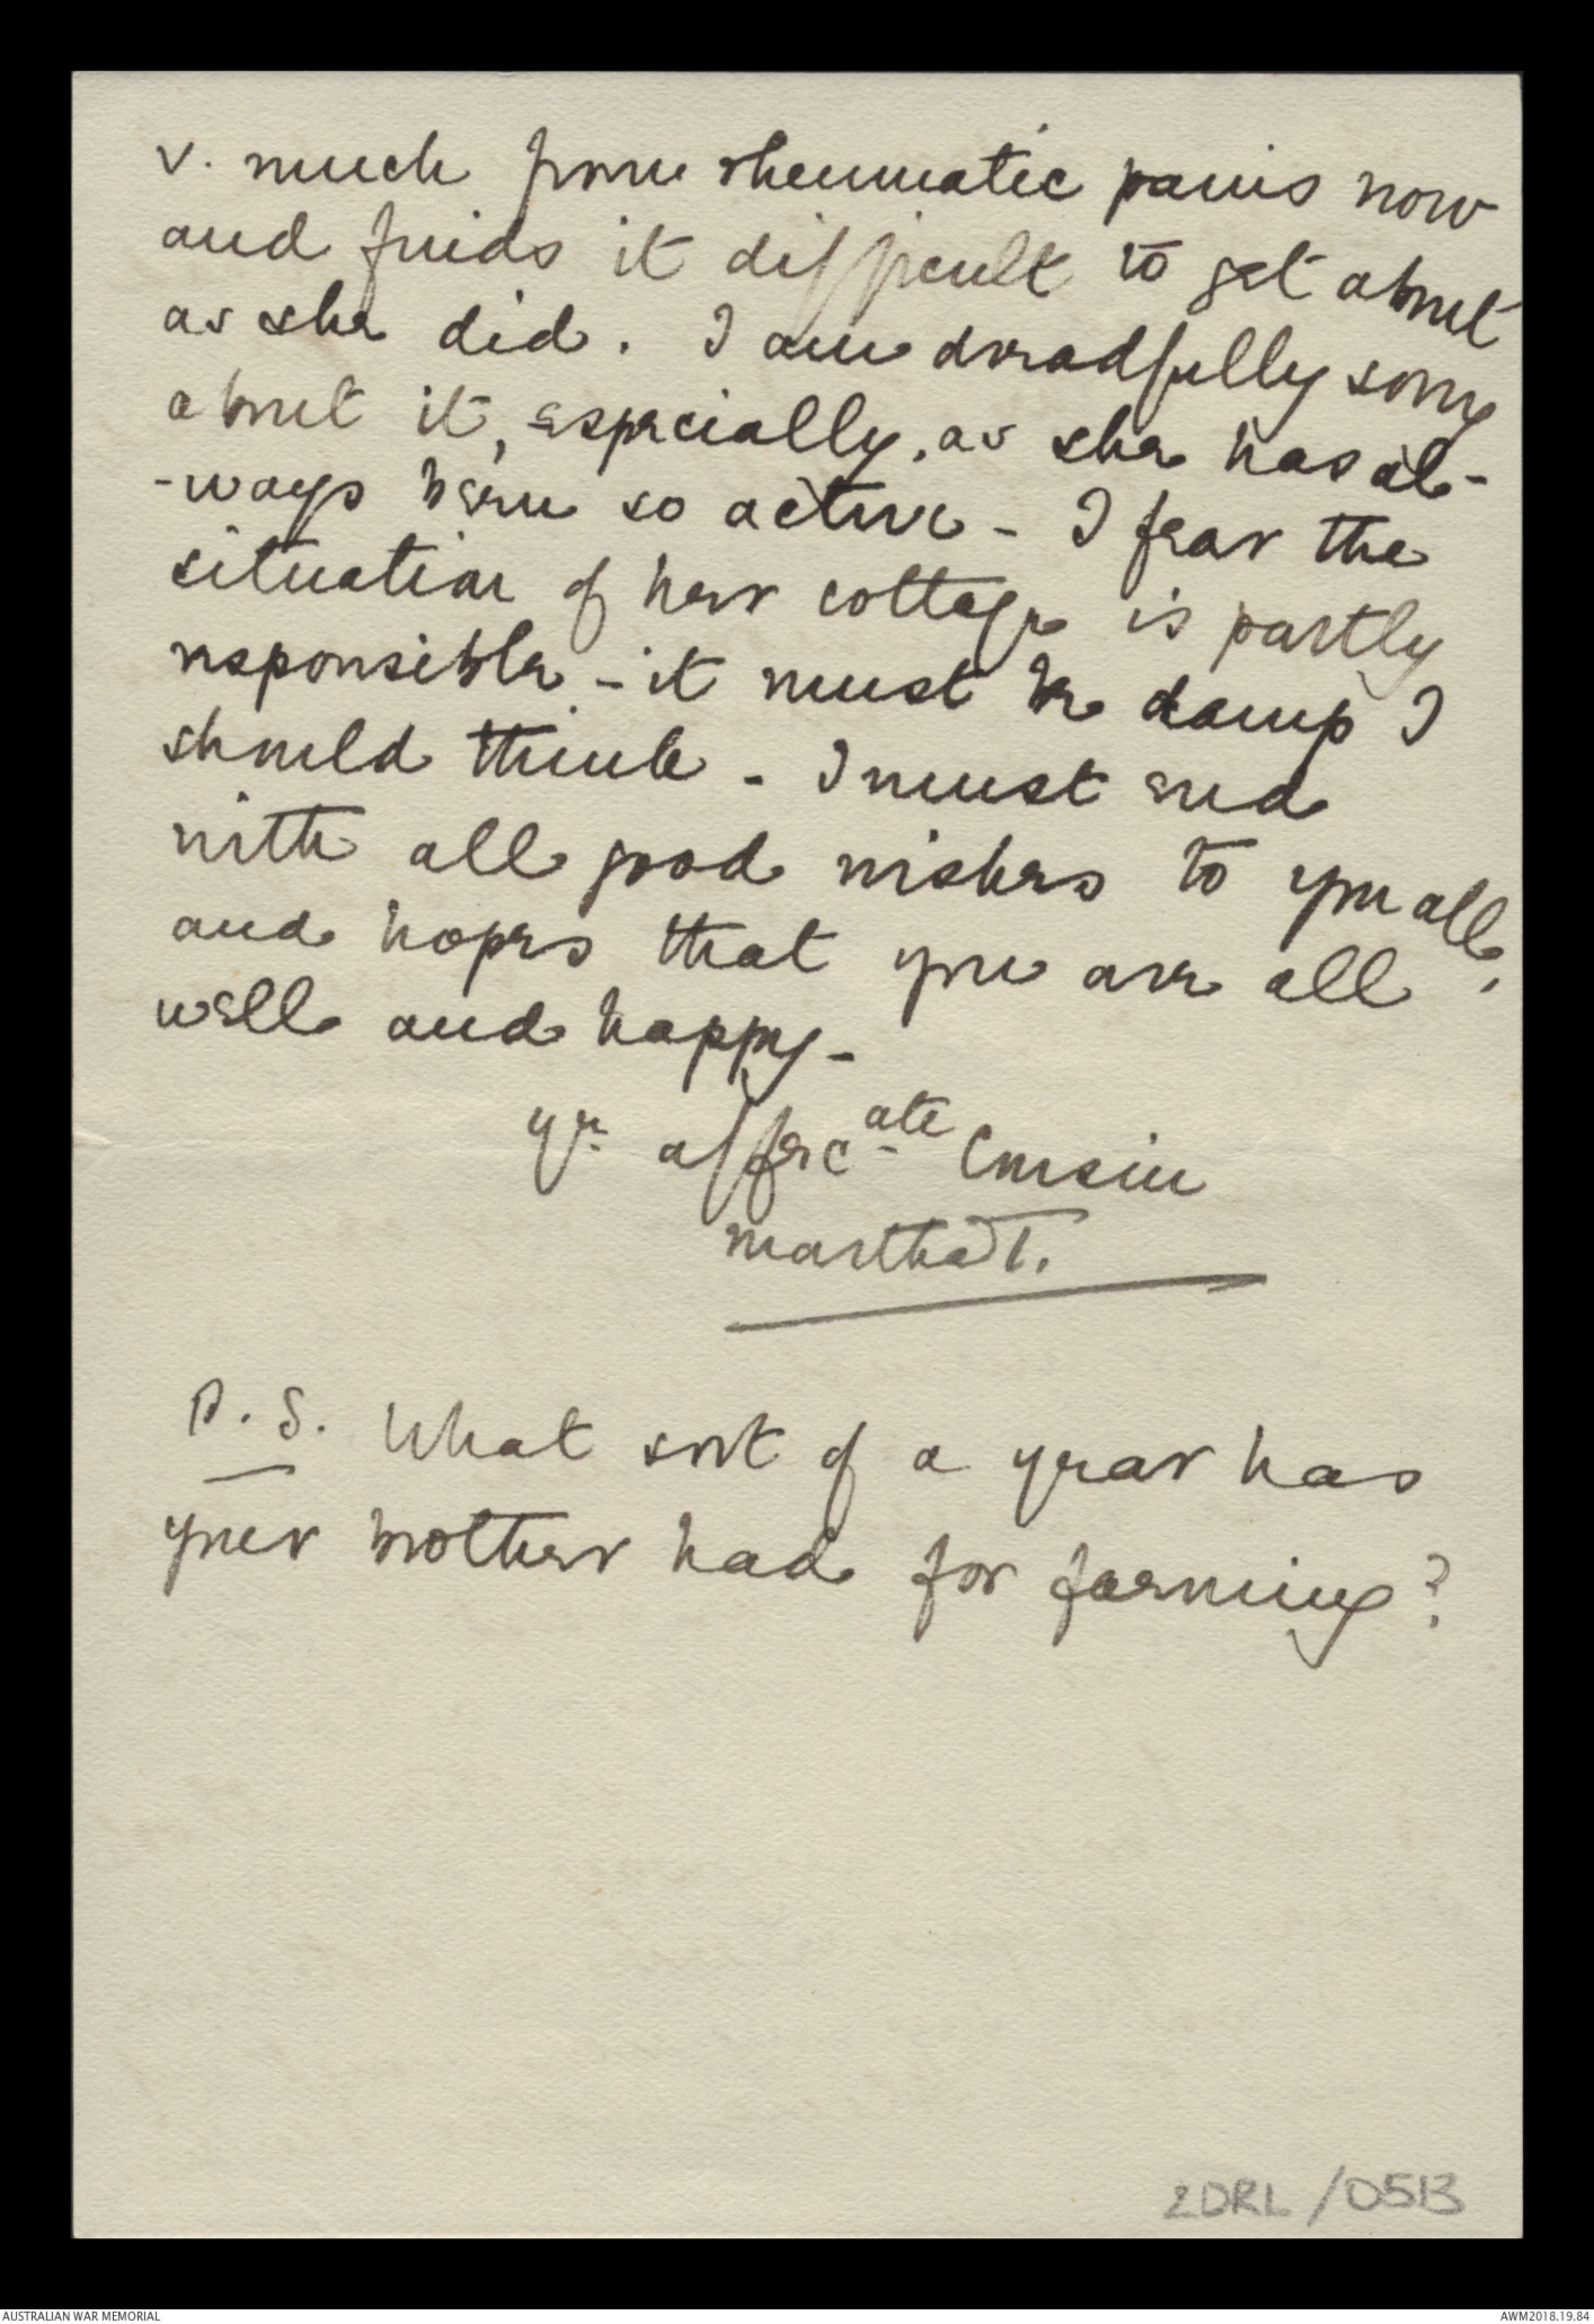 v. much from rheumatic pains now
and finds it difficult to get about
as she did. I am dreadfully sorry
about it, especially, as she has al-
-ways been so active - I fear the
situation of her cottage is partly
responsible - it must be damp I
should think - I must end
with all good wishes to you all,
and hopes that you are all
well and happy -
yr. affec^ate Cousin
Martha T.
P.S. What sort of a year has
your brother had for farming?
2DRL/0513
AUSTRALIAN WAR MEMORIAL
AWM2018.19.84